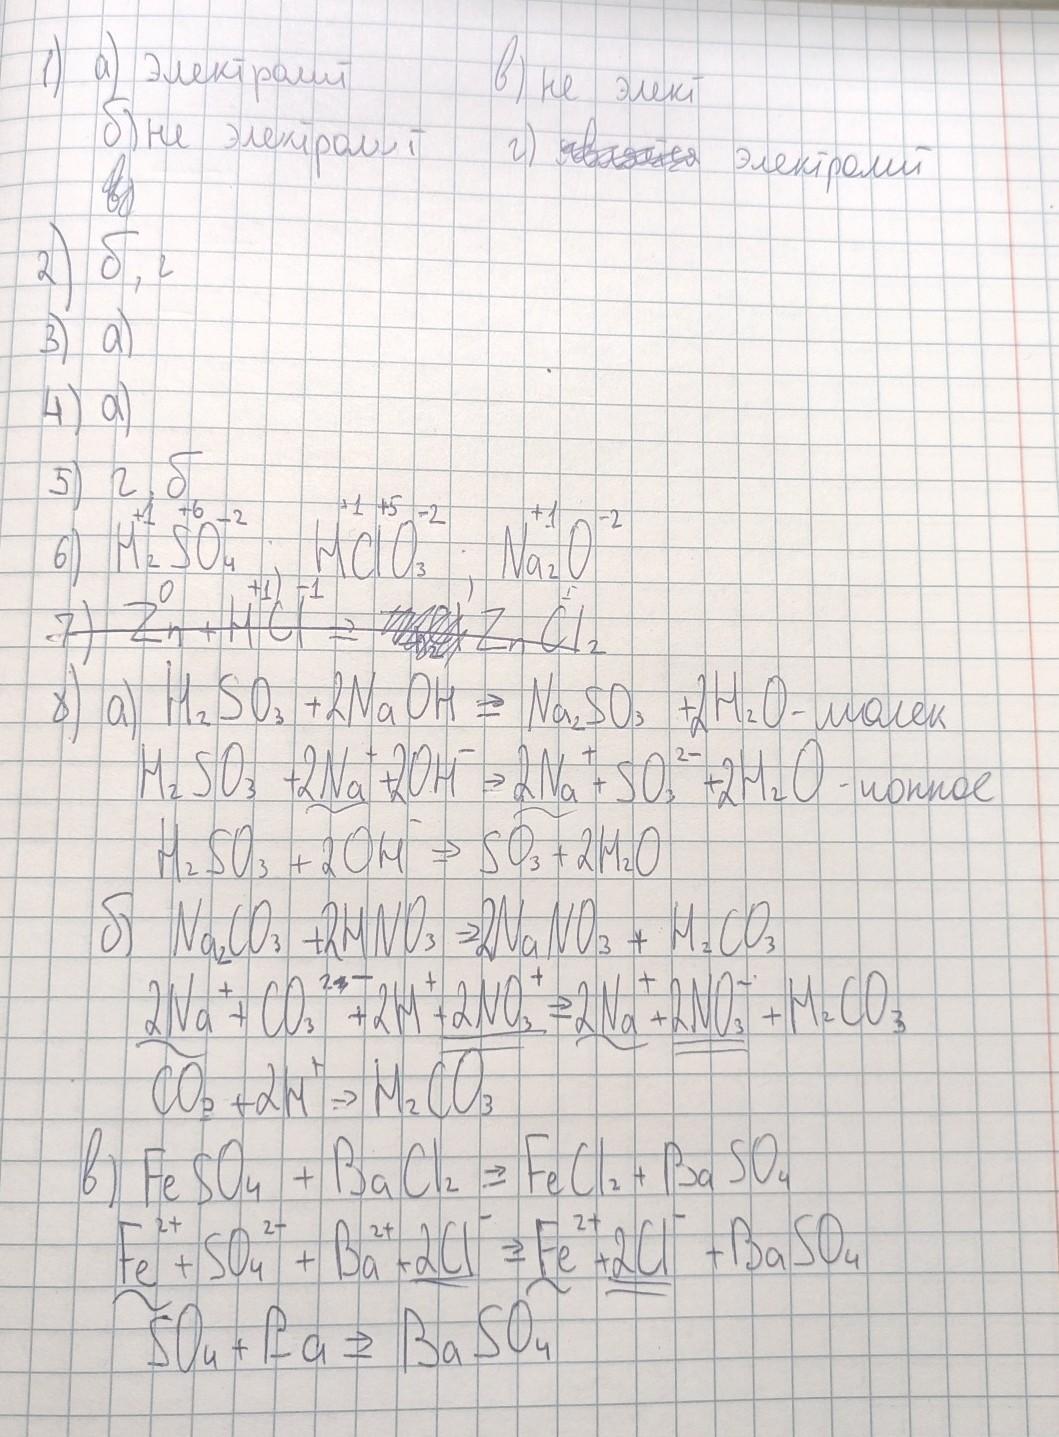 1) а) электролит в) не элект
б) не электролит г) электролит
2) б, г
3) а)
4) а)
5) г, б
6) H₂⁺¹S⁺⁶O₄⁻² ; H⁺¹Cl⁺⁵O₃⁻² ; Na₂⁺¹O⁻²
7) Zn⁰ + H⁺¹Cl⁻¹ = ZnCl₂
8) а) H₂SO₃ + 2NaOH ⇒ Na₂SO₃ + 2H₂O - молек
H₂SO₃ + 2Na⁺ + 2OH⁻ ⇒ 2Na⁺ + SO₃²⁻ + 2H₂O - ионное
H₂SO₃ + 2OH⁻ ⇒ SO₃ + 2H₂O
б) Na₂CO₃ + 2HNO₃ ⇒ 2NaNO₃ + H₂CO₃
2Na⁺ + CO₃²⁻ + 2H⁺ + 2NO₃⁺ ⇒ 2Na⁺ + 2NO₃⁻ + H₂CO₃
CO₃ + 2H⁺ ⇒ H₂CO₃
в) FeSO₄ + BaCl₂ ⇒ FeCl₂ + BaSO₄
Fe²⁺ + SO₄²⁻ + Ba²⁺ + 2Cl⁻ ⇒ Fe²⁺ + 2Cl⁻ + BaSO₄
SO₄ + Ba ⇒ BaSO₄